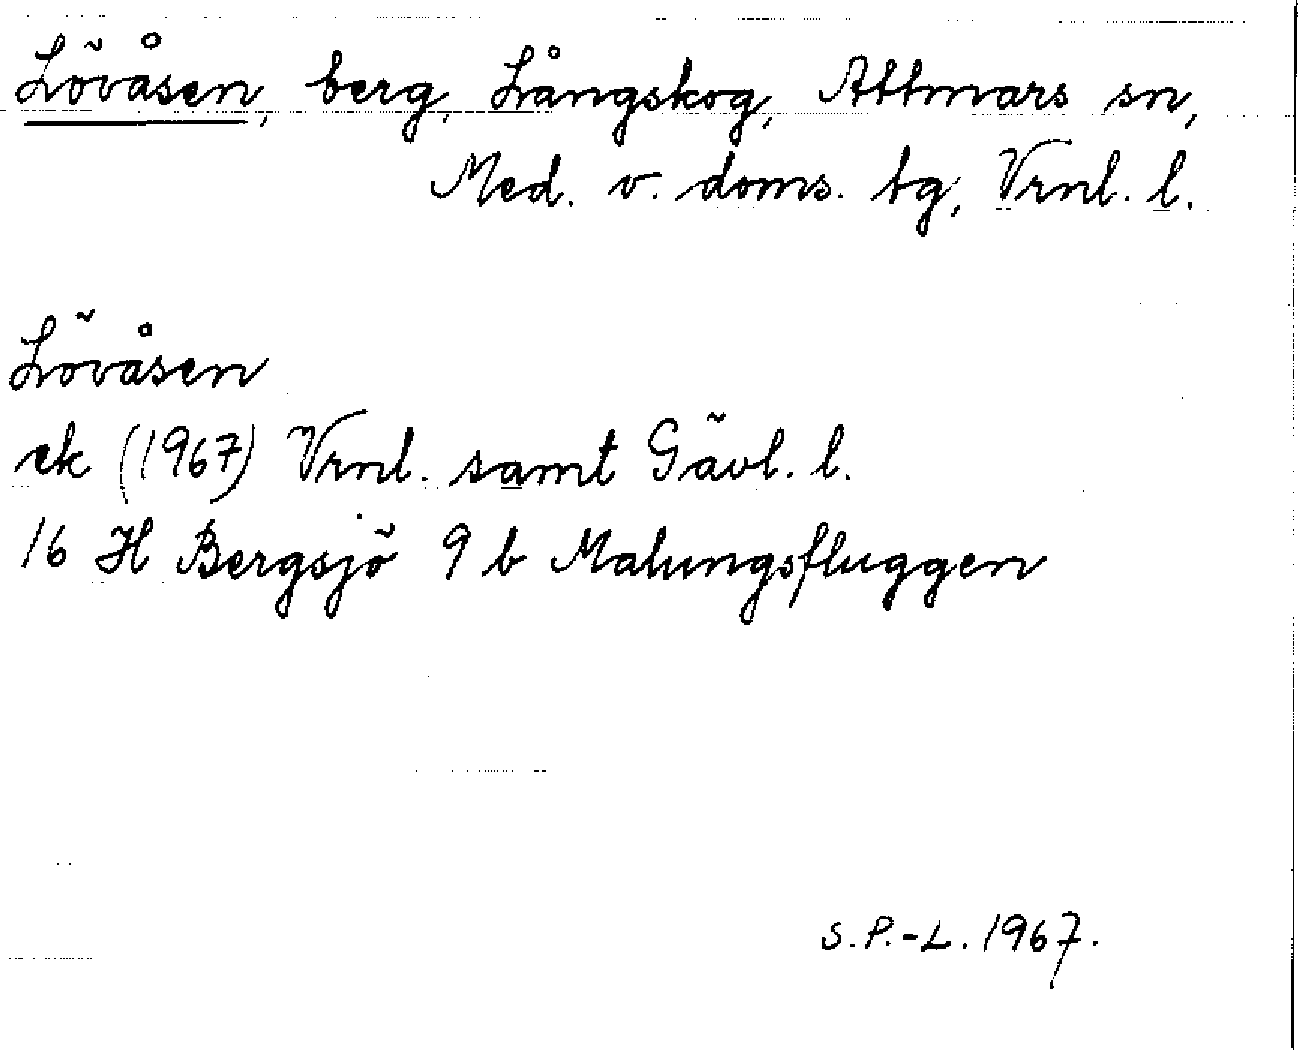 Lövåsen, berg, Långskog, Attmars sn,
Med. v. doms. tg, Vrnl. l.
Lövåsen
ek (1967) Vrnl. samt Gävl. l.
16 H Bergsjö 9 b Malungsfluggen
S.P.-L. 1967.